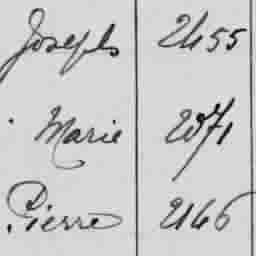 Joseph 2455
Marie 2071
Pierre 2146